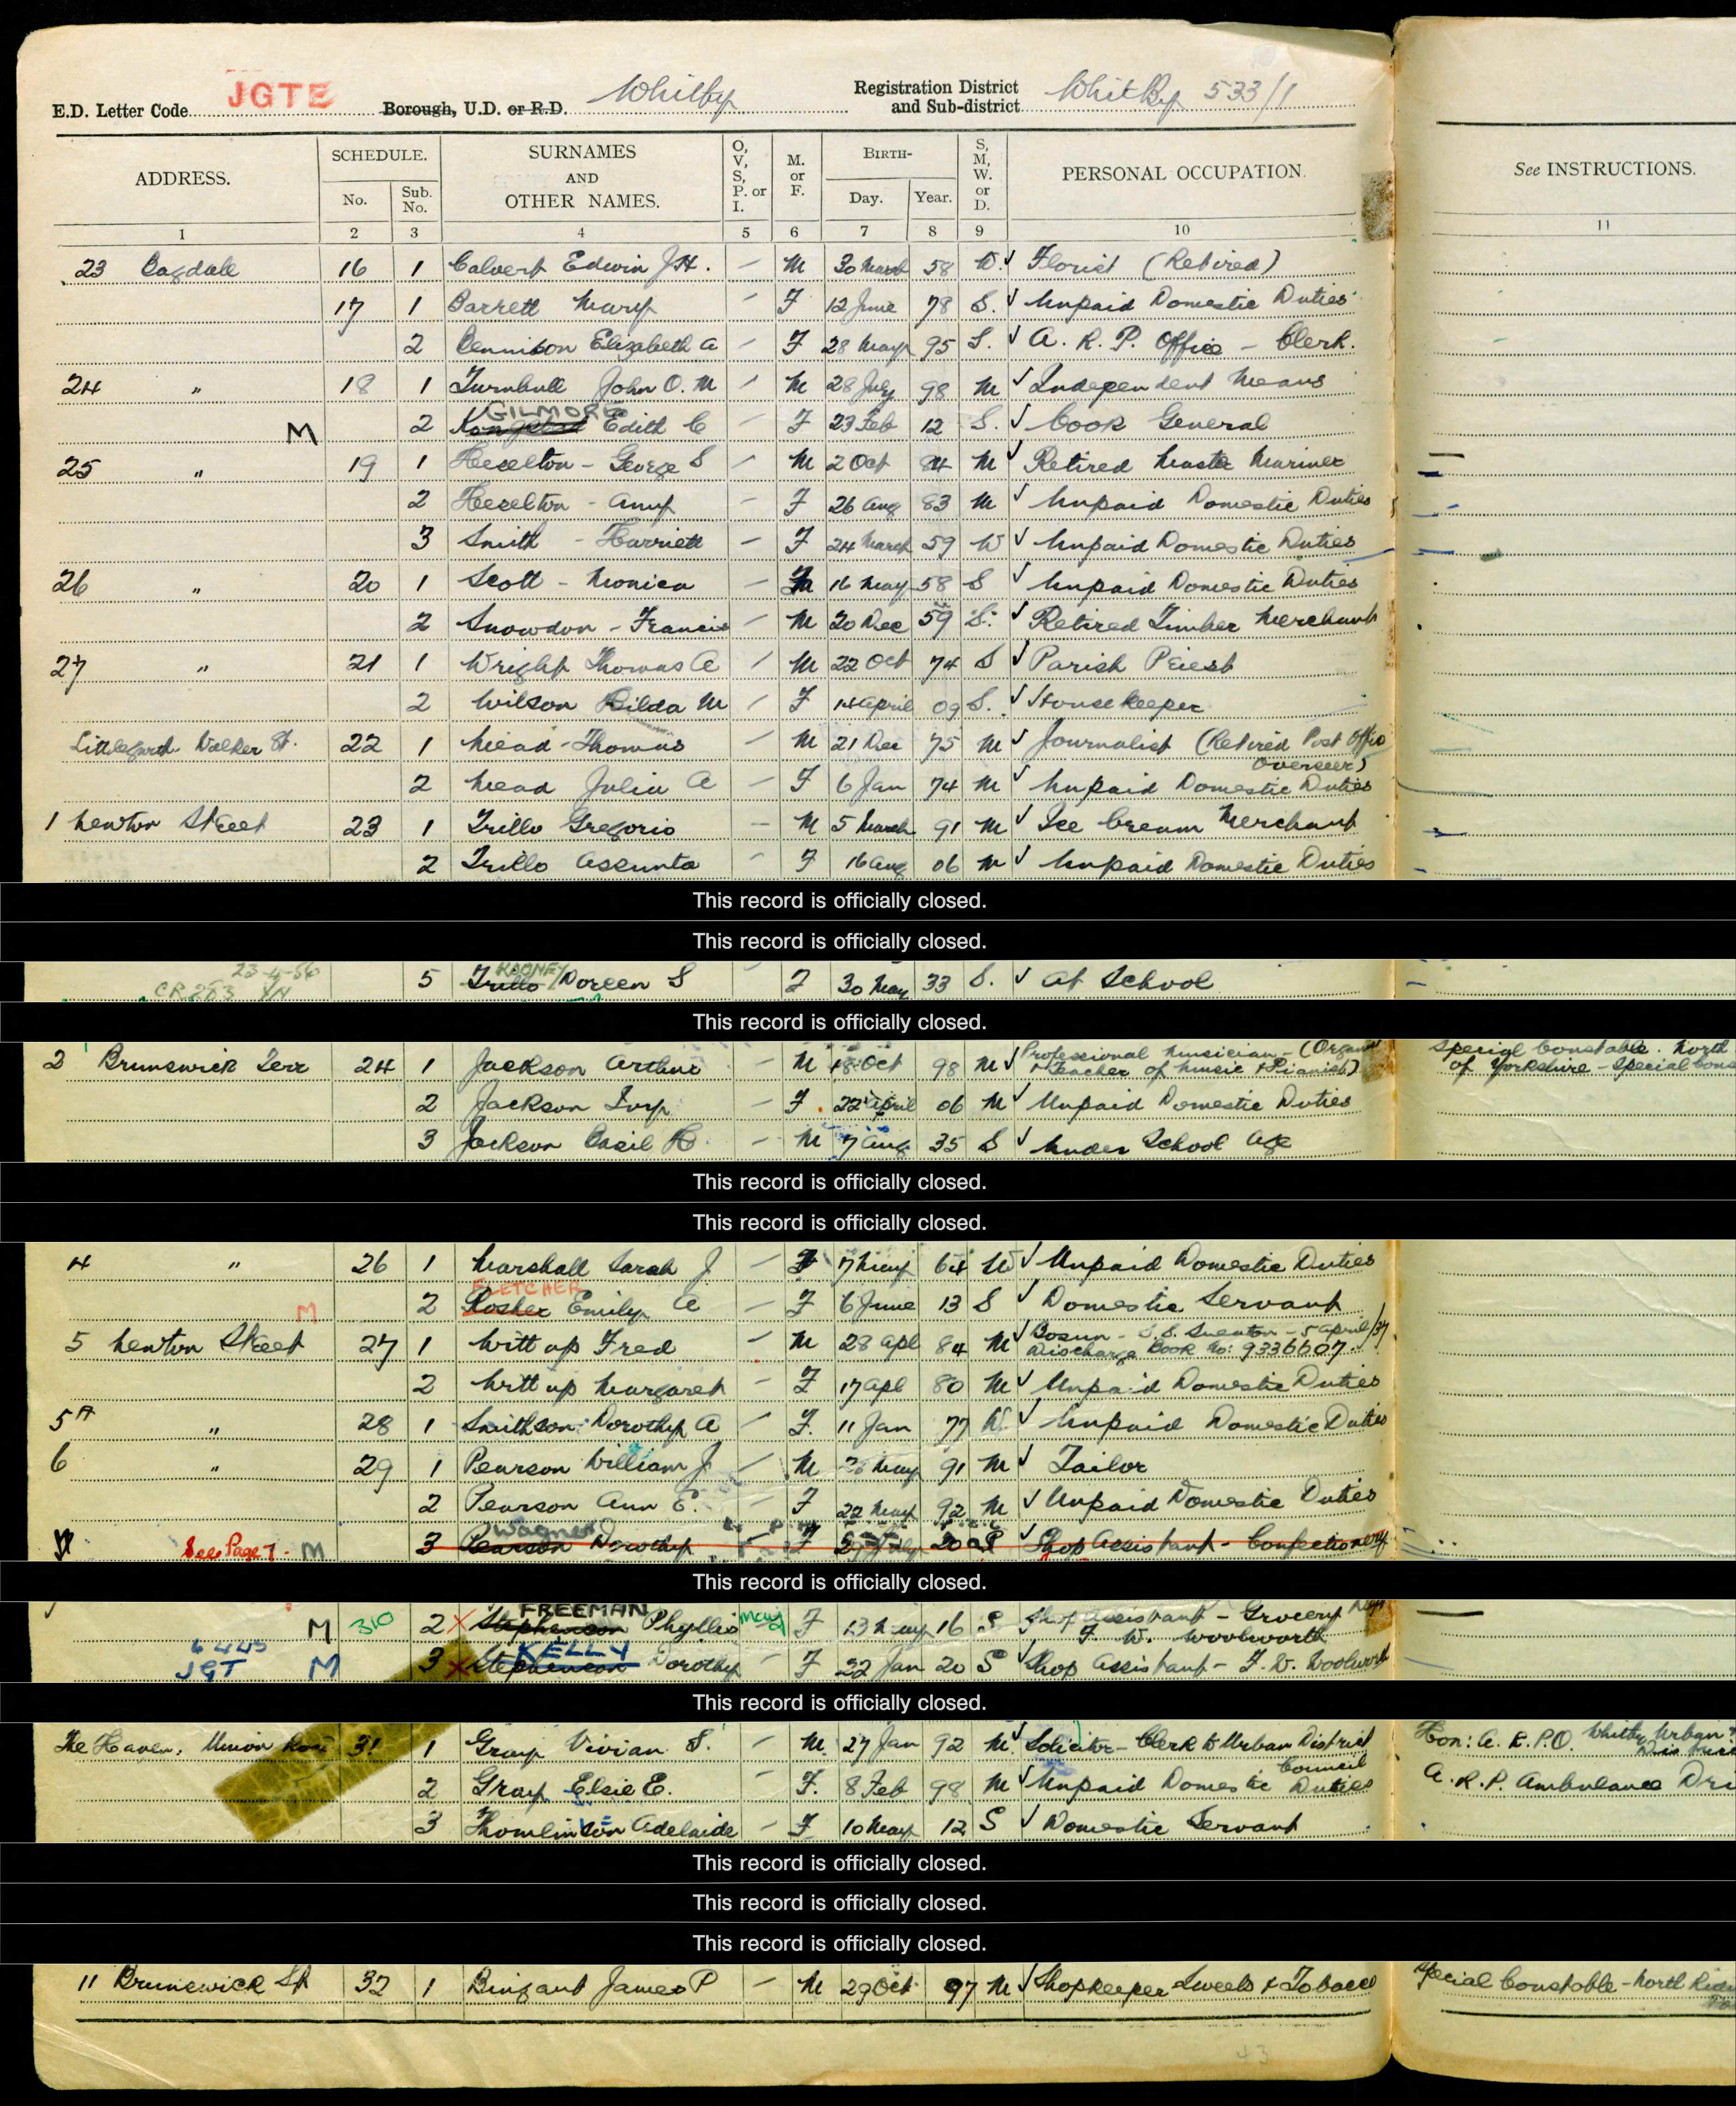 E.D. Letter Code JGTE Borough, U.D. or R.D. Whitby Registration District and Sub-district Whitby 533/1
ADDRESS. SCHEDULE. No. Sub. No. SURNAMES AND OTHER NAMES. O, V, S, P. or I. M. or F. BIRTH- Day. Year. S, M, W. or D. PERSONAL OCCUPATION. See INSTRUCTIONS.
1 2 3 4 5 6 7 8 9 10 11
23 Bagdale 16 1 Calvert Edwin J.H. — M 30 March 58 W. ✓ Florist (Retired)
17 1 Barrett Mary — F 12 June 78 S. ✓ Unpaid Domestic Duties
2 Dennison Elizabeth A — F 28 May 95 S. ✓ A. R. P. Office - Clerk.
24 " 18 1 Turnbull John O. M — M 28 July 98 M ✓ Independent Means
GILMORE
M 2 Edith C — F 23 Feb 12 S. ✓ Cook General
25 " 19 1 Heselton - George S — M 2 Oct 84 M ✓ Retired Master Mariner
2 Heselton - Amy — F 26 Aug 83 M ✓ Unpaid Domestic Duties
3 Smith - Harriett — F 24 March 59 W ✓ Unpaid Domestic Duties
26 " 20 1 Scott - Monica — F 16 May 58 S ✓ Unpaid Domestic Duties
2 Snowdon - Francis — M 20 Dec 59 S. ✓ Retired Timber Merchant
27 " 21 1 Wright Thomas A — M 22 Oct 74 S ✓ Parish Priest
2 Wilson Hilda M — F 14 April 09 S. ✓ Housekeeper
Littlegarth Walker St. 22 1 Mead - Thomas — M 21 Dec 75 M ✓ Journalist (Retired Post Office
Overseer)
2 Mead Julia A — F 6 Jan 74 M ✓ Unpaid Domestic Duties
1 Newton Street 23 1 Trillo Gregorio — M 5 March 91 M ✓ Ice Cream Merchant
2 Trillo Assunta — F 16 Aug 06 M ✓ Unpaid Domestic Duties
This record is officially closed.
This record is officially closed.
23-4-56 ROONEY
CR 283 YN 5 Trillo Doreen S — F 30 May 33 S. ✓ At School
This record is officially closed.
2 Brunswick Terr 24 1 Jackson Arthur — M 18 Oct 98 M ✓ Professional Musician - (Organ Special Constable. North
+ Teacher of Music + Pianist) of Yorkshire - Special Cons
2 Jackson Ivy — F 22 April 06 M ✓ Unpaid Domestic Duties
3 Jackson Basil H. — M 7 Aug 35 S ✓ Under School Age
This record is officially closed.
This record is officially closed.
4 " 26 1 Marshall Sarah J — F 7 May 64 W ✓ Unpaid Domestic Duties
FLETCHER
M 2 Emily A — F 6 June 13 S ✓ Domestic Servant
5 Newton Street 27 1 Writtup Fred — M 28 Apl 84 M ✓ Bosun - S.S. - 5 April/37
Discharge Book No: 9336607.
2 Writtup Margaret — F 17 Apl 80 M ✓ Unpaid Domestic Duties
5A " 28 1 Smithson Dorothy A — F. 11 Jan 77 W. ✓ Unpaid Domestic Duties
6 " 29 1 Pearson William J — M May 91 M ✓ Tailor
2 Pearson Ann E. — F 22 May 92 M ✓ Unpaid Domestic Duties
Wagner
See Page 7. M 3 Pearson Dorothy F July 20 S Shop Assistant - Confectionery
This record is officially closed.
FREEMAN
M 310 2 X Stephenson Phyllis May F 13 May 16 S Shop Assistant - Grocery Dept
F. W. Woolworth
6445 KELLY
JGT M 3 X Stephenson Dorothy — F 22 Jan 20 S Shop Assistant - F. W. Woolworth
This record is officially closed.
The Haven, Union Road 31 1 Gray Vivian S. — M. 27 Jan 92 M ✓ Solicitor - Clerk to Urban District Hon: A. R. P.O. Whitby Urban
Council
2 Gray Elsie E. — F. 8 Feb 98 M ✓ Unpaid Domestic Duties A.R.P. Ambulance Dri
3 Thomlinson Adelaide — F 10 May 12 S ✓ Domestic Servant
This record is officially closed.
This record is officially closed.
This record is officially closed.
11 Brunswick St 32 1 James P — M 29 Oct 97 M ✓ Shopkeeper Sweets & Tobacco Special Constable - North Ridi
43